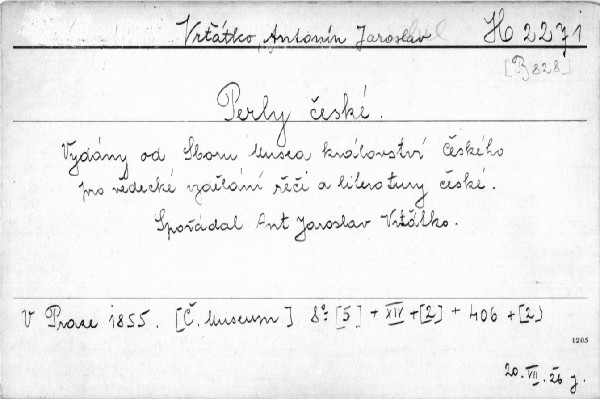 Vrťátko, Antonín Jaroslav H 2271
[B 828]
Perly české.
Vydány od Sboru Musea království českého
pro vědecké vzdělání řěči a literatury české.
Spořádal Ant Jaroslav Vrťátko.
V Praze 1855. [Č. Museum] 8° [5] + XIV + [2] + 406 + [2]
1205
20. VII. 26 j.